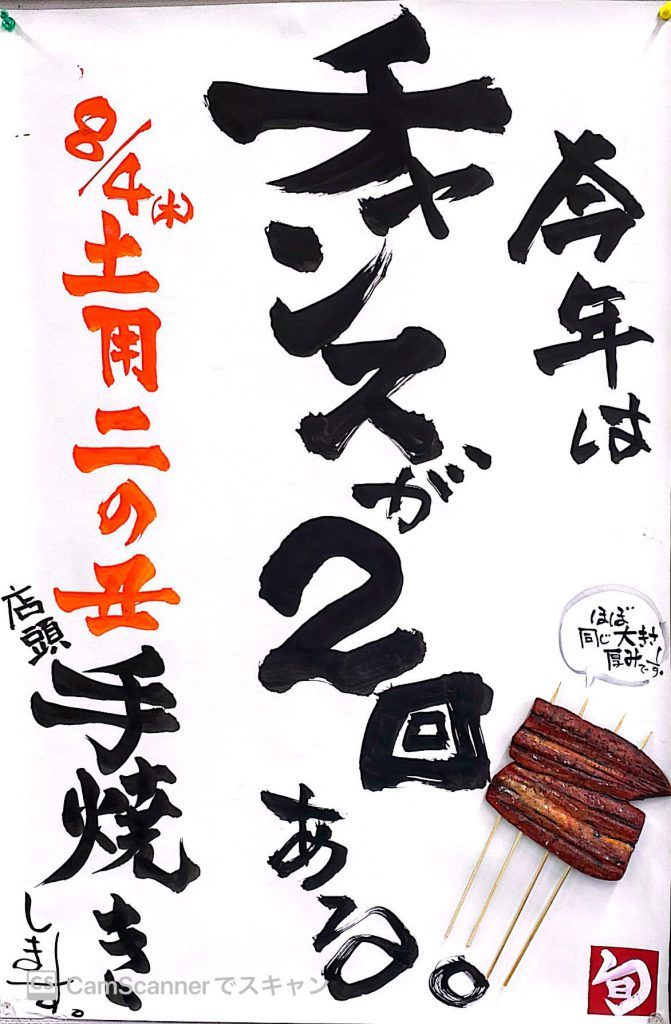 今年は
チャンスが2回
ある。
8/4(木)土用二の丑
店頭
手焼き
します。
ほぼ
同じ大きさ
厚みです。
旬
CS CamScannerでスキャン